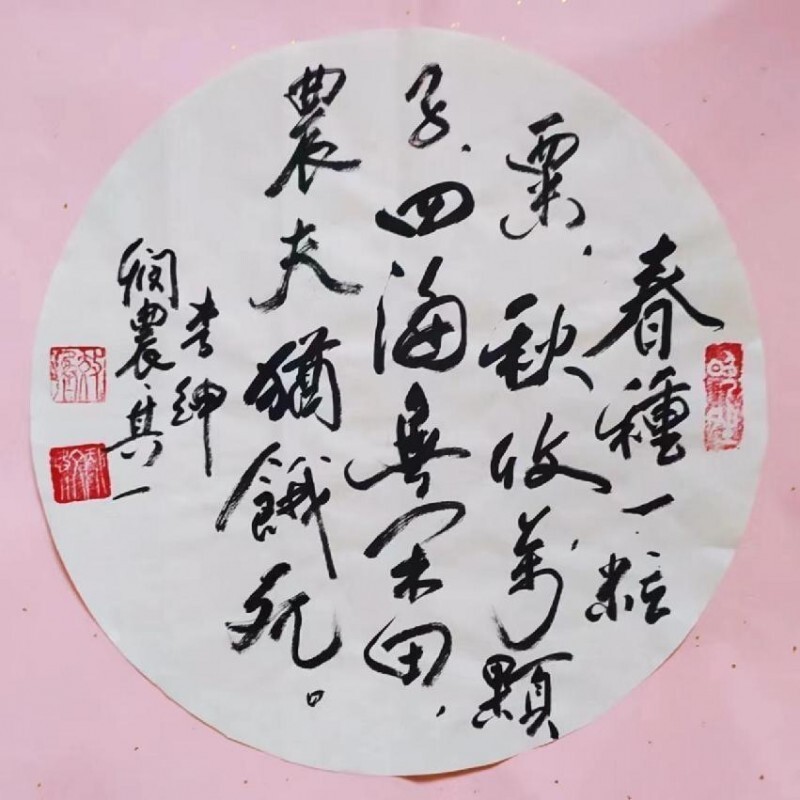 春種一粒
粟，秋收萬顆
子，四海無閑田，
農夫猶餓死。
李紳
憫農其一